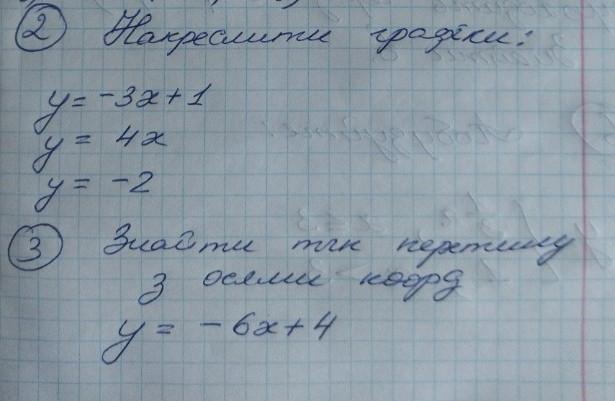 2 Накреслити графіки:
y = -3x + 1
y = 4x
y = -2
3 Знайти тчк перетину
з осями коорд
y = -6x + 4